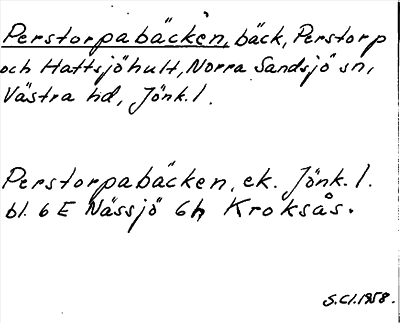 Perstorpabäcken, bäck, Perstorp
och Hattsjöhult, Norra Sandsjö sn,
Västra hd, Jönk. l.
Perstorpabäcken, ek. Jönk. l.
bl. 6 E Nässjö 6h Kroksås.
S.Cl. 1958.